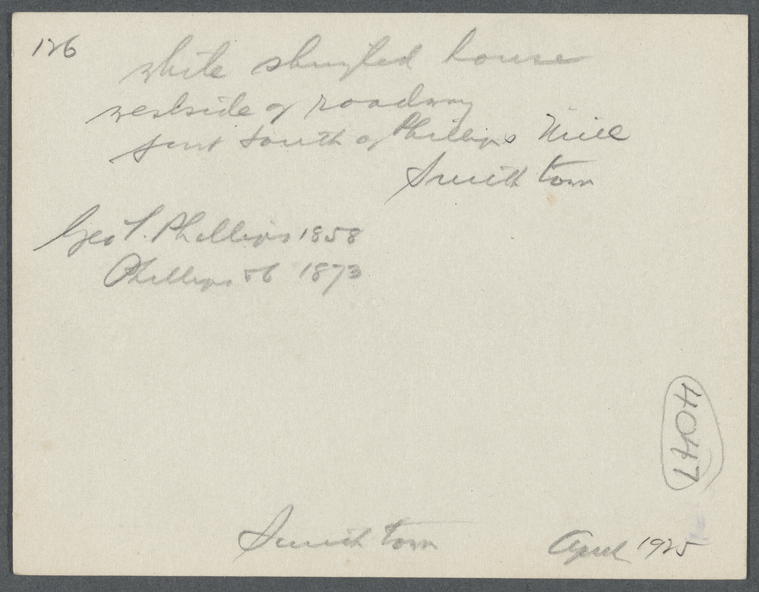 126
white shingled house
westside of roadway
just south of Phillips Mill
Smithtown
Geo L. Phillips 1858
Phillips 1873
Smithtown
April 1925